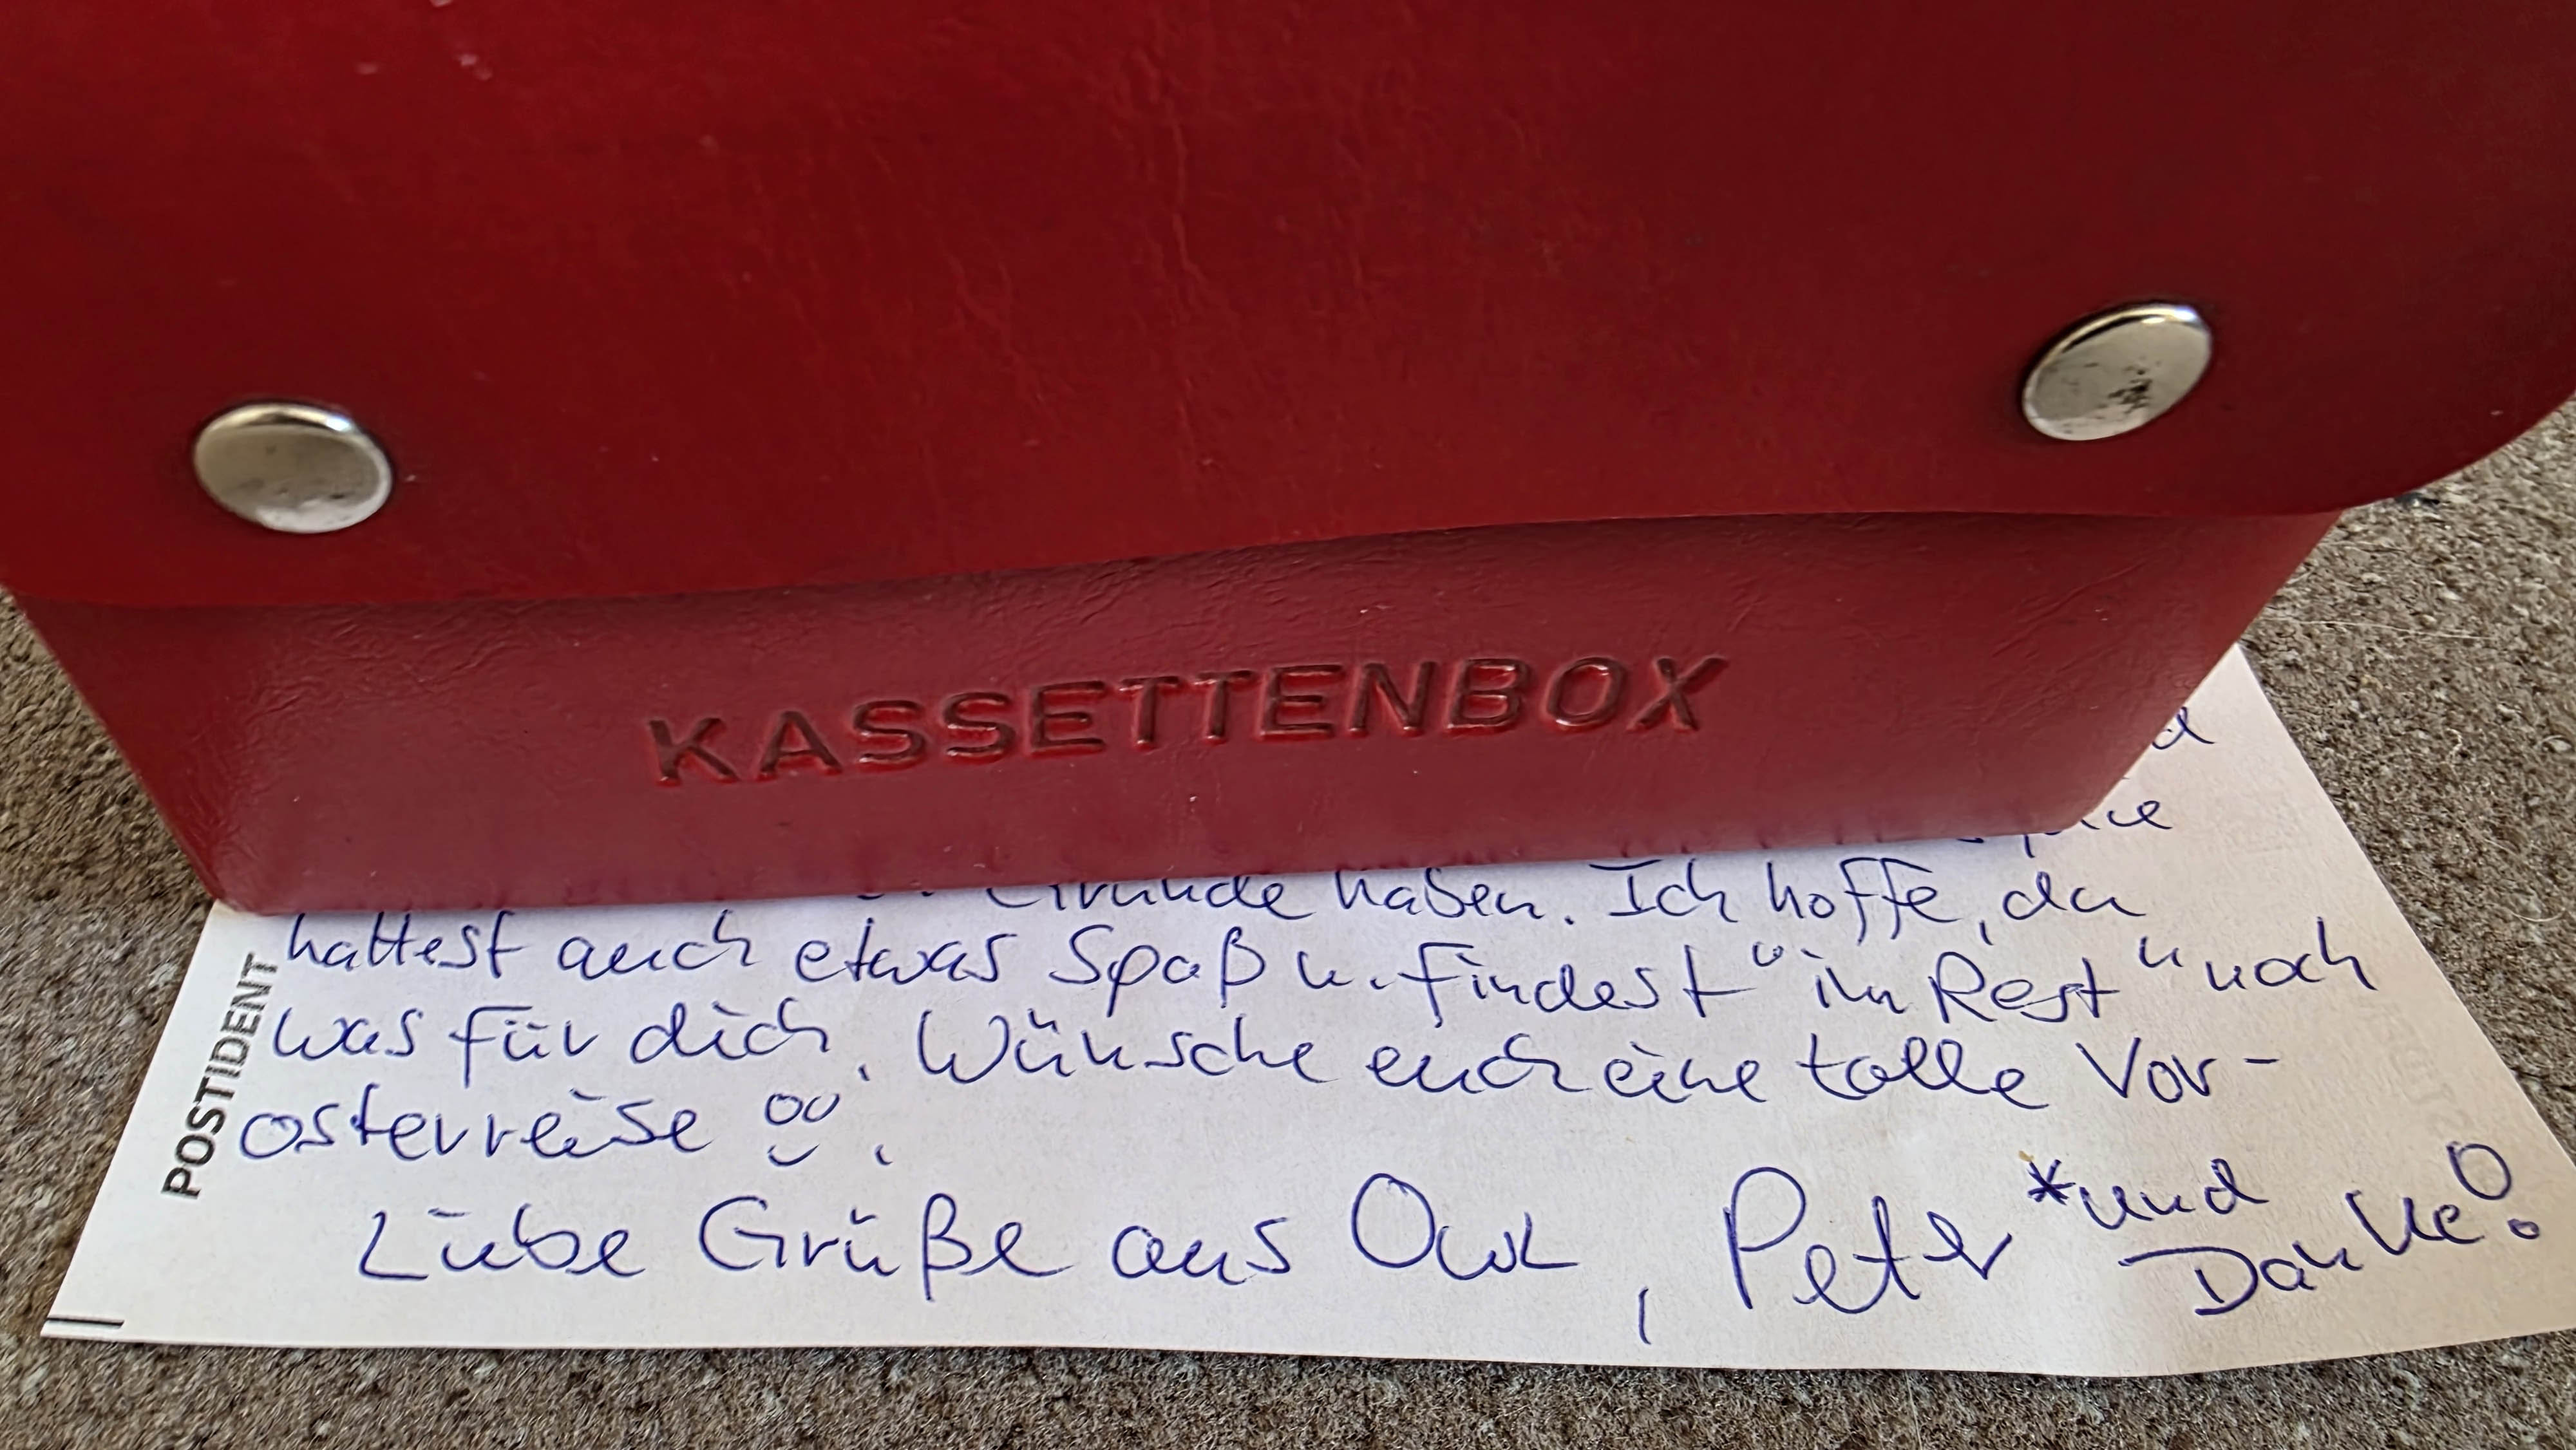 KASSETTENBOX
Gründe haben. Ich hoffe, du
hattest auch etwas Spaß u. findest "im Rest" noch
was für dich. Wünsche euch eine tolle Vor-
osterreise
Liebe Grüße aus OWL, Peter *und
Danke!
POSTIDENT